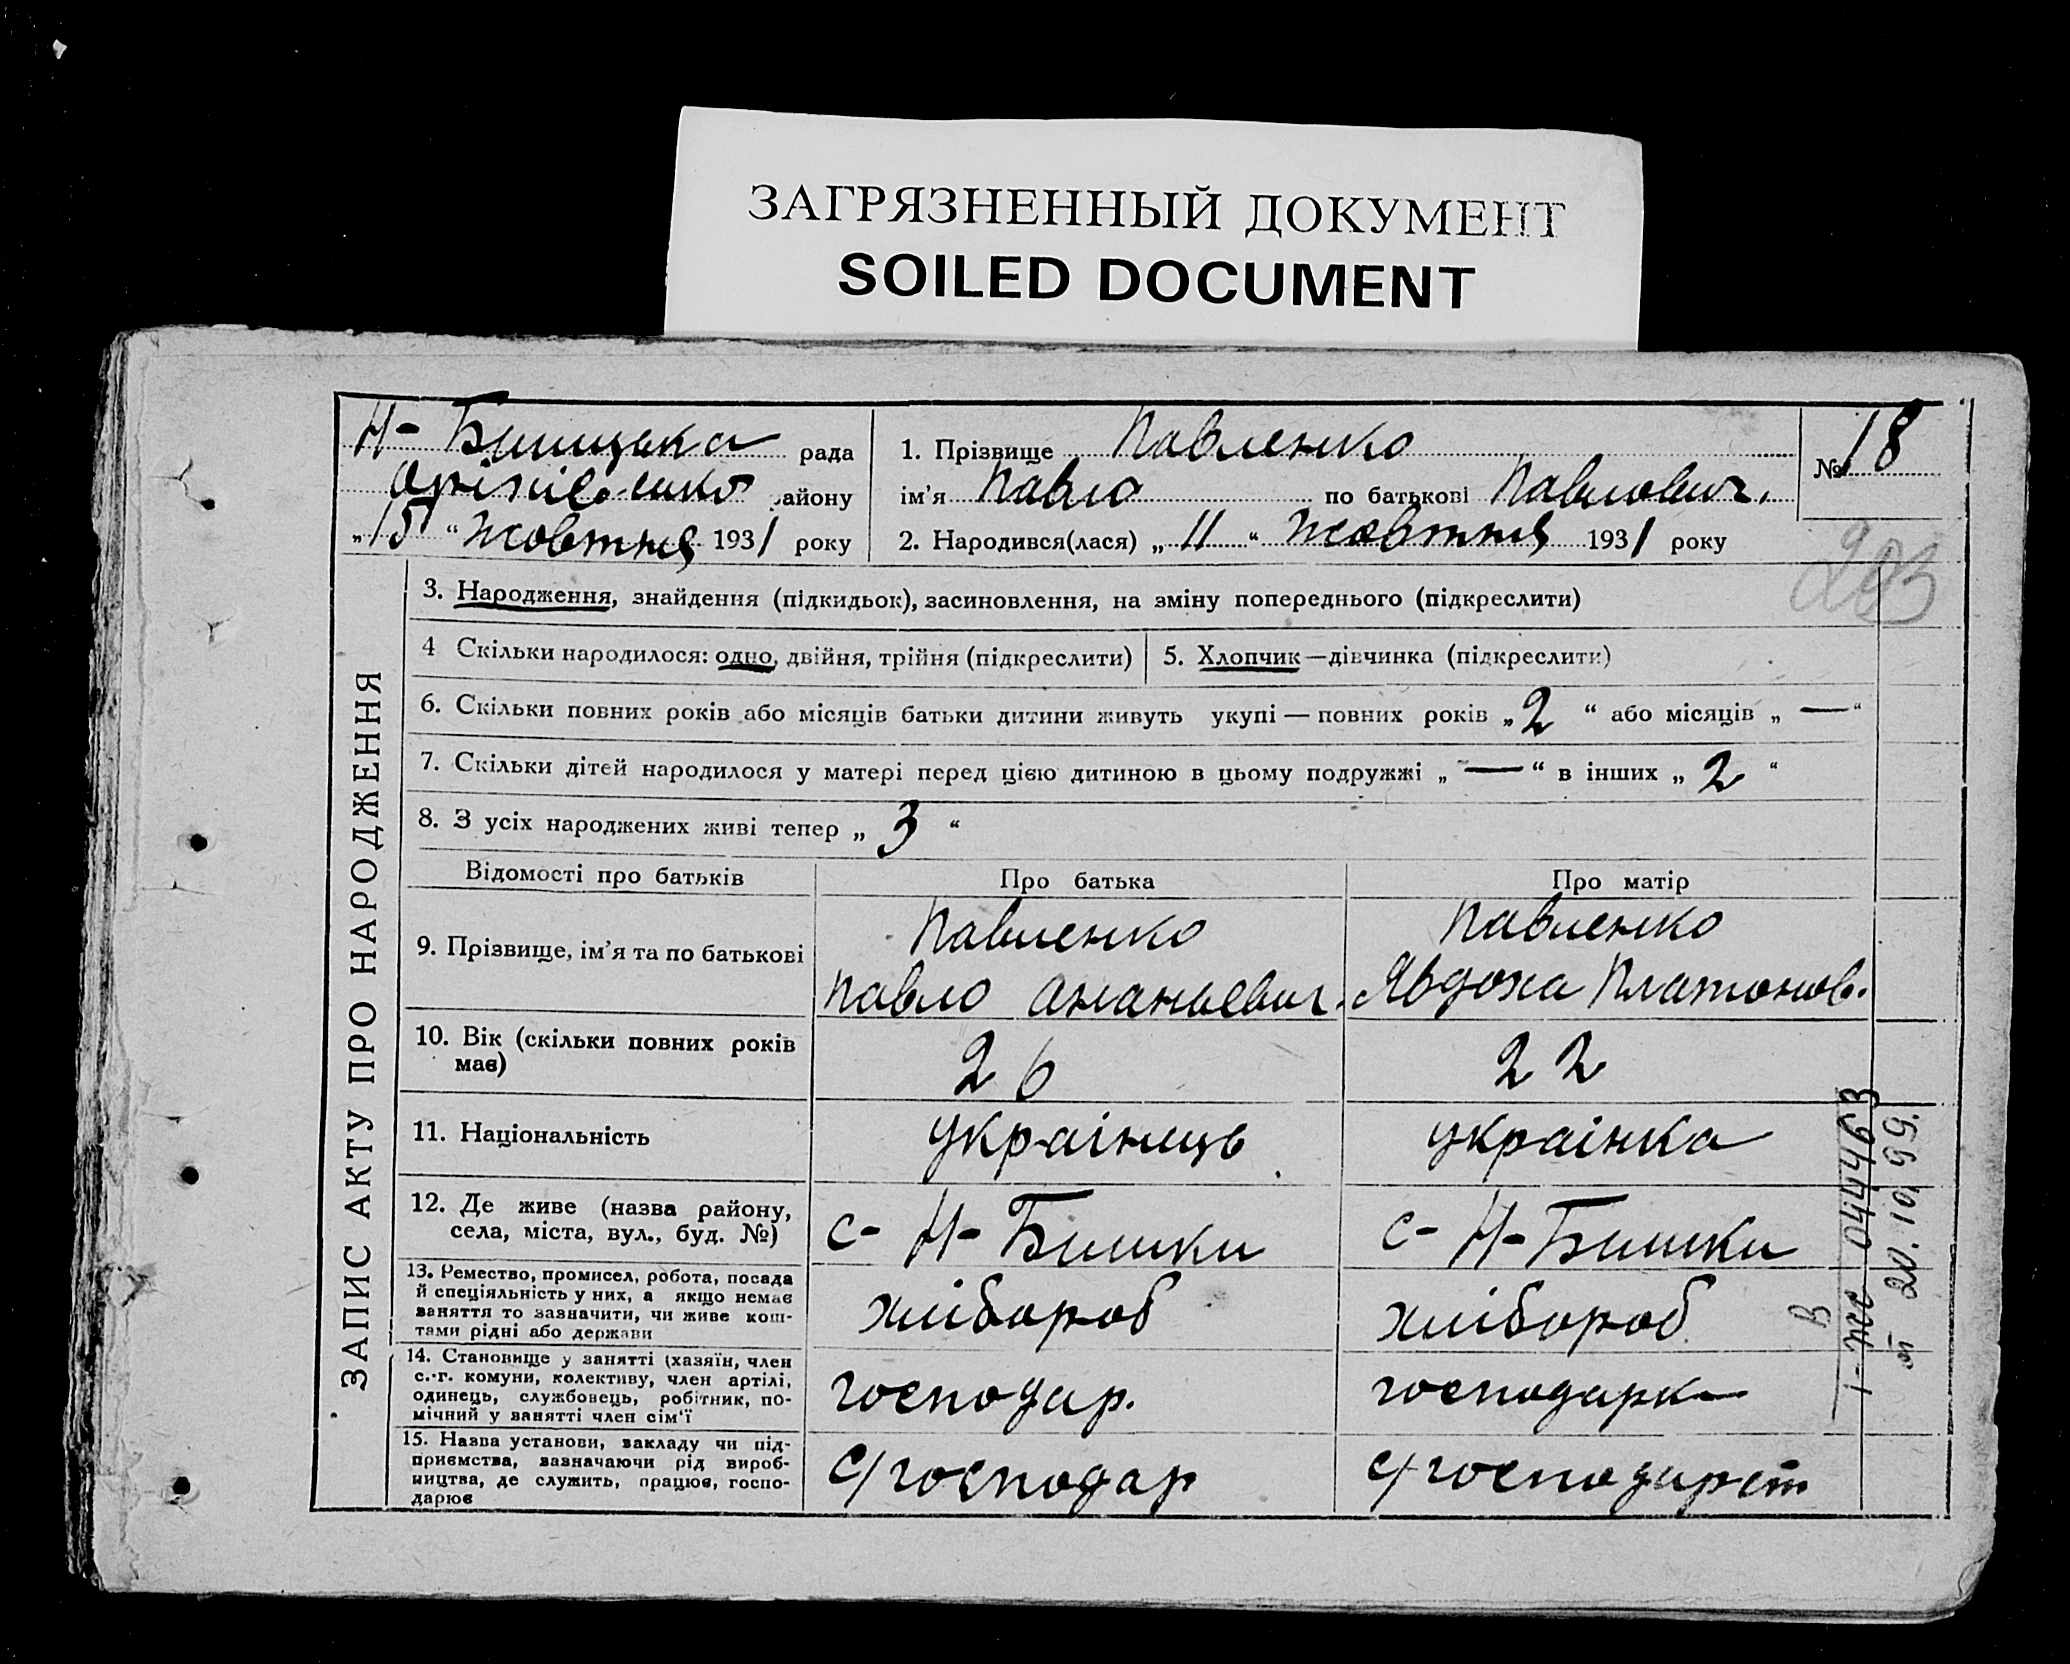 ЗАГРЯЗНЕННЫЙ ДОКУМЕНТ
SOILED DOCUMENT
Н-Бишцька рада
району
„15“ Жовтня 1931 року
1. Прізвище Павленко
ім’я Павло по батькові Павлович.
2. Народився(лася) „11“ Жовтня 1931 року
№ 18
203
ЗАПИС АКТУ ПРО НАРОДЖЕННЯ
3. Народження, знайдення (підкидьок), засиновлення, на зміну попереднього (підкреслити)
4 Скільки народилося: одно, двійня, трійня (підкреслити)
5. Хлопчик—дівчинка (підкреслити)
6. Скільки повних років або місяців батьки дитини живуть укупі — повних років „2“ або місяців „—“
7. Скільки дітей народилося у матері перед цією дитиною в цьому подружжі „—“ в інших „2“
8. З усіх народжених живі тепер „3“
Відомості про батьків
Про батька
Про матір
9. Прізвище, ім’я та по батькові
Павленко
Павло Ананьевич.
Павленко
Явдоха Платонов.
10. Вік (скільки повних років
має)
26
22
11. Національність
українець
українка
12. Де живе (назва району,
села, міста, вул., буд. №)
с- Н-Бишки
с- Н-Бишки
13. Ремество, промисел, робота, посада
й спеціяльність у них, а якщо немає
заняття то зазначити, чи живе кош-
тами рідні або держави
хлібороб
хлібороб
14. Становище у занятті (хазяїн, член
с.-г. комуни, колективу, член артілі,
одинець, службовець, робітник, по-
мічний у занятті член сім’ї
господар.
господарка
15. Назва установи, закладу чи під-
приємства, зазначаючи рід вироб-
ництва, де служить, працює, госпо-
дарює
с/господар
с/господарст
В
І-ЖС 044463
от 20.10.99.